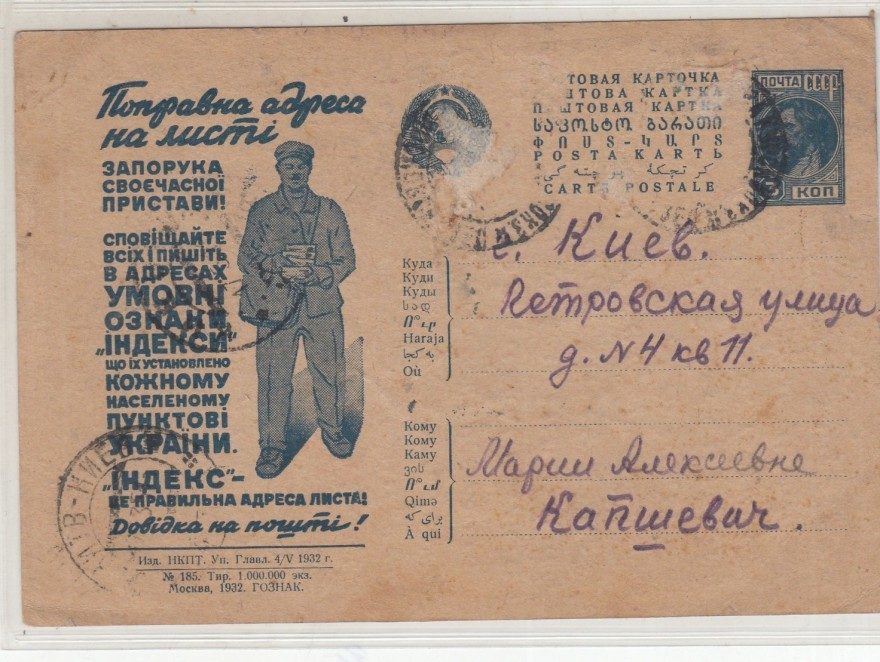 Поправна адреса
на листі
ЗАПОРУКА
СВОЄЧАСНОЇ
ПРИСТАВИ!
СПОВІЩАЙТЕ
ВСІХ І ПИШІТЬ
В АДРЕСАХ
УМОВНІ
ОЗНАКИ
„ІНДЕКСИ"
ЩО ЇХ УСТАНОВЛЕНО
КОЖНОМУ
НАСЕЛЕНОМУ
ПУНКТОВІ
УКРАЇНИ.
„ІНДЕКС"-
ЦЕ ПРАВИЛЬНА АДРЕСА ЛИСТА!
Довідка на пошті!
Изд. НКПТ. Уп. Главл. 4/V 1932 г.
№ 185. Тир. 1.000.000 экз.
Москва, 1932. ГОЗНАК.
ТОВАЯ КАРТОЧКА
ШТОВА КАРТКА
П ШТОВАЯ КАРТКА
ᲡᲐᲤᲝᲡᲢᲝ ᲑᲐᲠᲐᲗᲘ
ՓՈՍՏ-ԿԱՐՏ
POSTA KARTЬ
CARTE POSTALE
ПОЧТА СССР
КОП
г. Киев.
Петровская улица
д. N 4 кв 11.
Куда
Куди
Куды
სად
Ո՞ւր
Haraja
به کجا
Où
Кому
Кому
Каму
ვის
Ո՞ւմ
Qimə
برای که
À qui
Марии Алексеевне
Капшевич.
КИЕВ